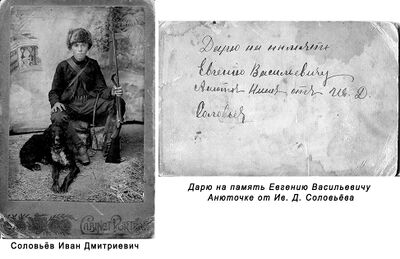 Дарю на память
Евгению Васильевичу
от Ив. Д.
Соловьев
CABINET PORTRAIT
Соловьёв Иван Дмитриевич
Дарю на память Евгению Васильевичу
Анюточке от Ив. Д. Соловьёва